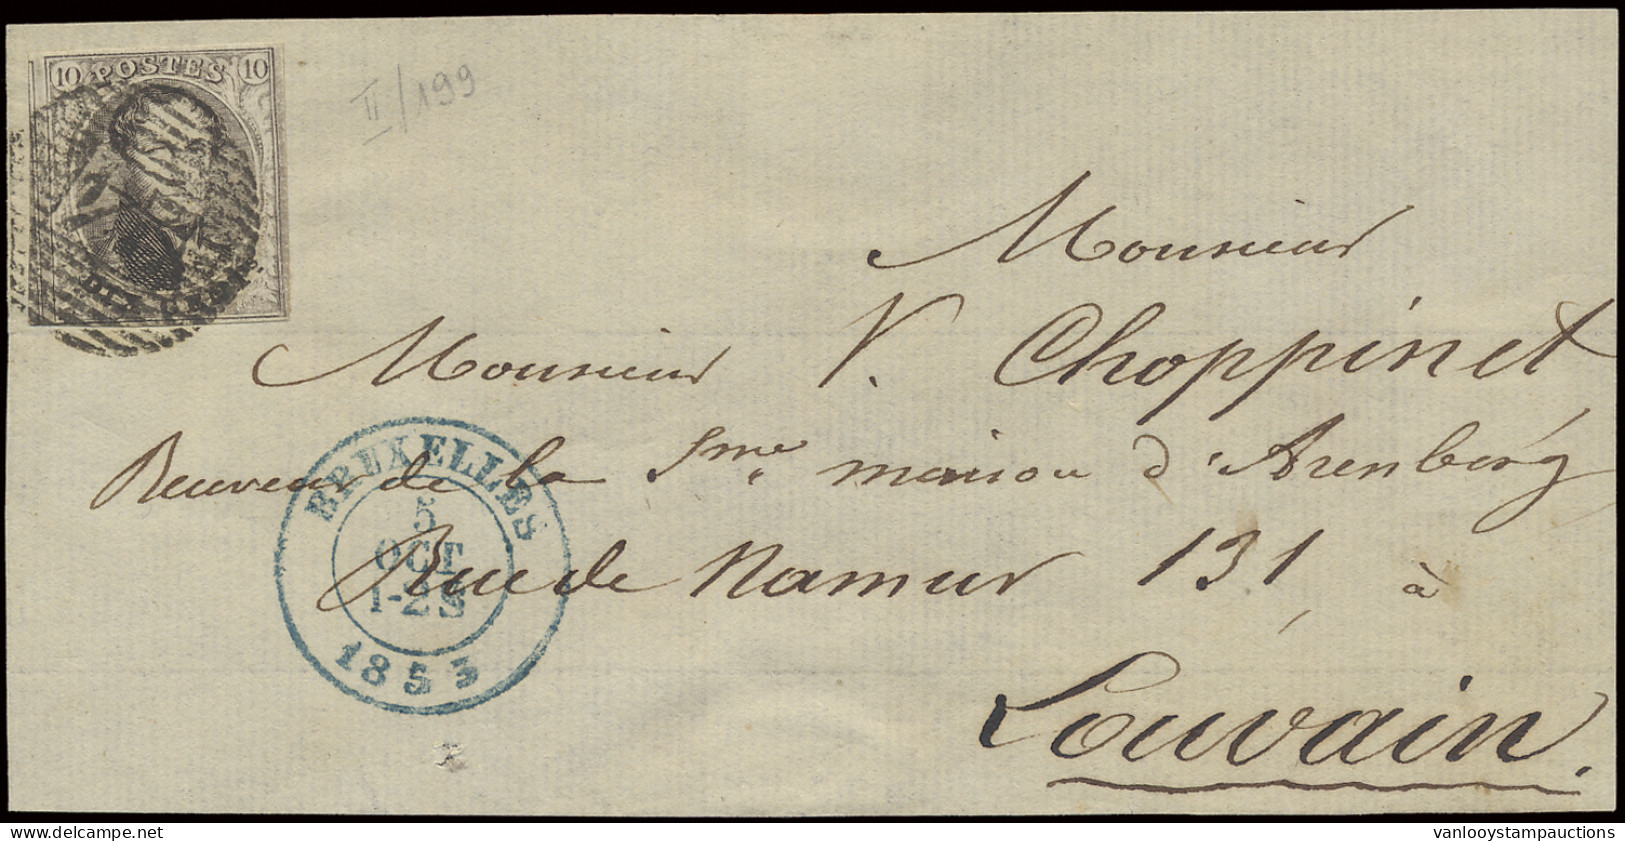 10 POSTES 10
DIX CENTS.
II/199
Monsieur
Monsieur V. Choppinet
Receveur de la Sme maison d'Arenberg
Rue de Namur 131, à
Louvain.
BRUXELLES
5
OCT
1-2S
1853
delcampe.net
vanlooystampauctions